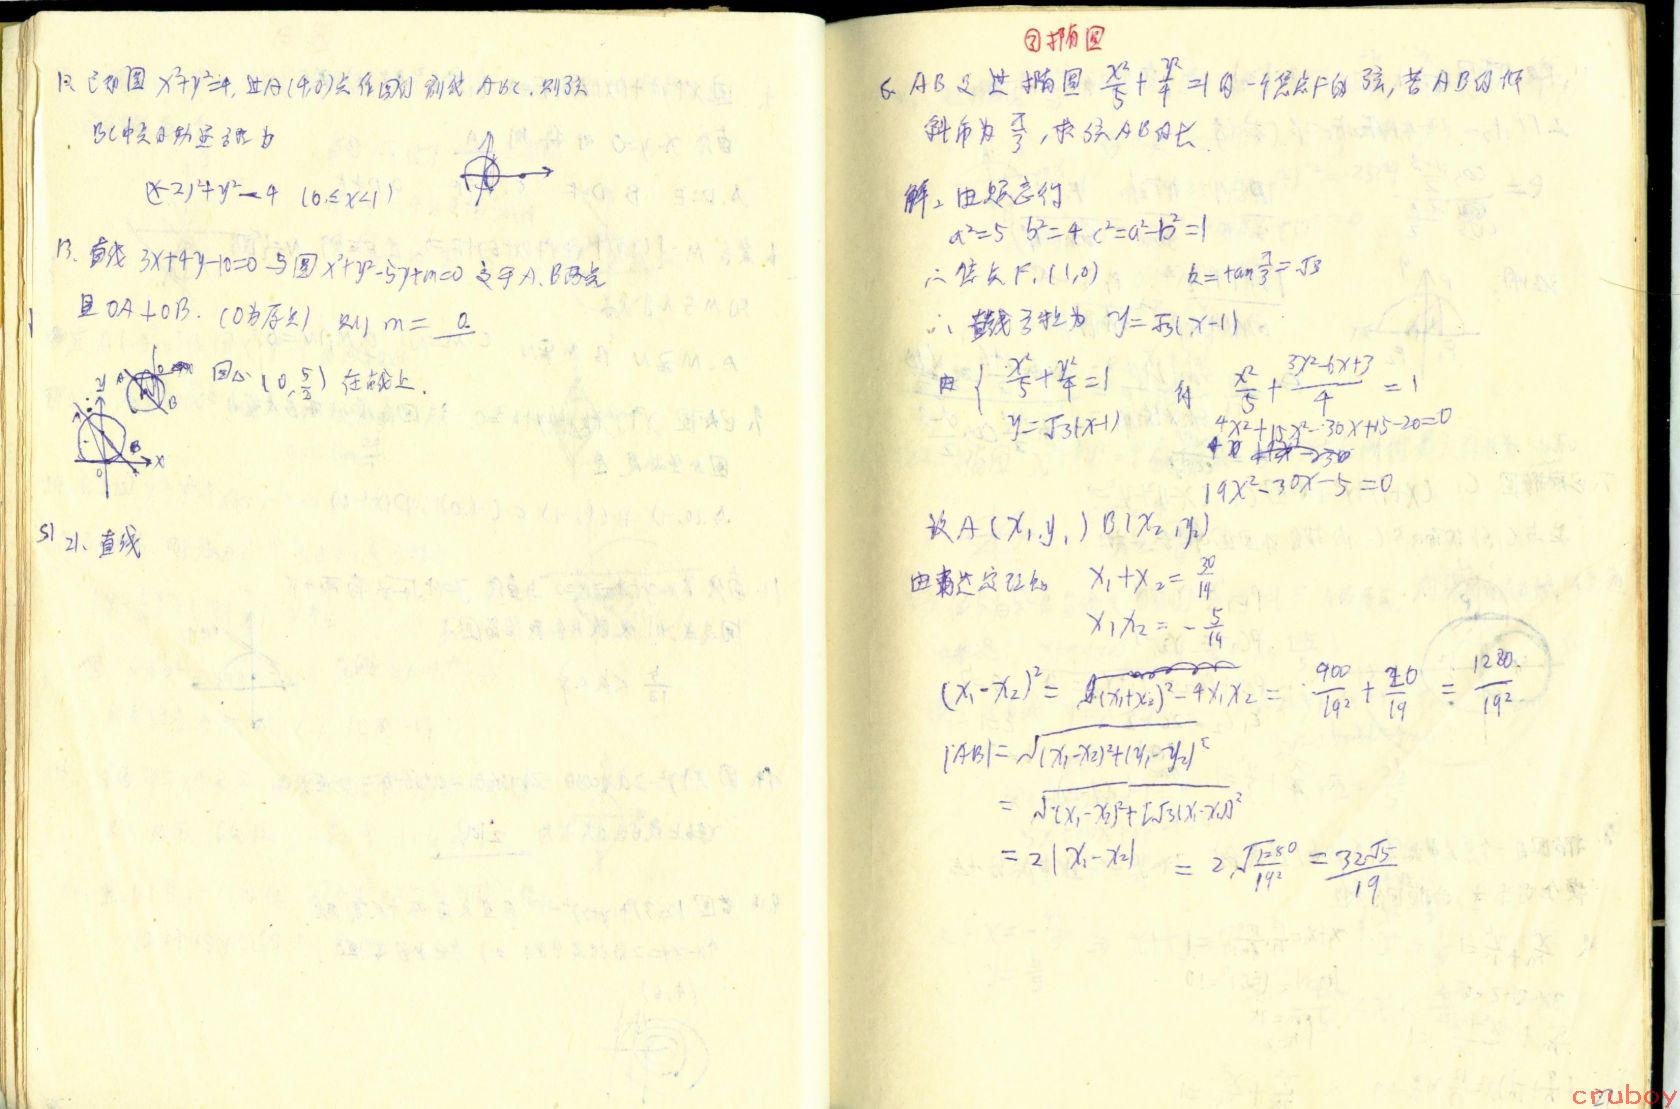 12. 已知圆 x²+y²=4, 过A(4,0)点作圆的割线ABC, 则弦
BC中点的轨迹方程为
(x-2)²+y²=4 (0≤x<1)
13. 直线 3x+4y-10=0 与圆 x²+y²-5y+m=0 交于A、B两点
且OA⊥OB. (O为原点) 则 m= 0
圆心 (0, 5/2) 在线上.
A
B
y
A
B
O
x
51 21. 直线
② 椭圆
6. AB是过椭圆 x²/5+y²/4=1的一个焦点F的弦, 若AB的倾
斜角为 π/3, 求弦AB的长.
解: 由题意得
a²=5 b²=4 c²=a²-b²=1
∴ 焦点 F₁(1,0) k=tanπ/3=√3
∴ 直线方程为 y=√3(x-1)
由{ x²/5+y²/4=1 得 x²/5+(3x²-6x+3)/4=1
y=√3(x-1) 4x²+15x²-30x+15-20=0
19x²-30x-5=0
设A(x₁,y₁) B(x₂,y₂)
由韦达定理知 x₁+x₂=30/19
x₁x₂=-5/19
(x₁-x₂)²=(x₁+x₂)²-4x₁x₂=900/19²+20/19=1280/19²
|AB|=√(x₁-x₂)²+(y₁-y₂)²
=√(x₁-x₂)²+[√3(x₁-x₂)]²
=2|x₁-x₂| =2√1280/19² =32√5/19
cruboy